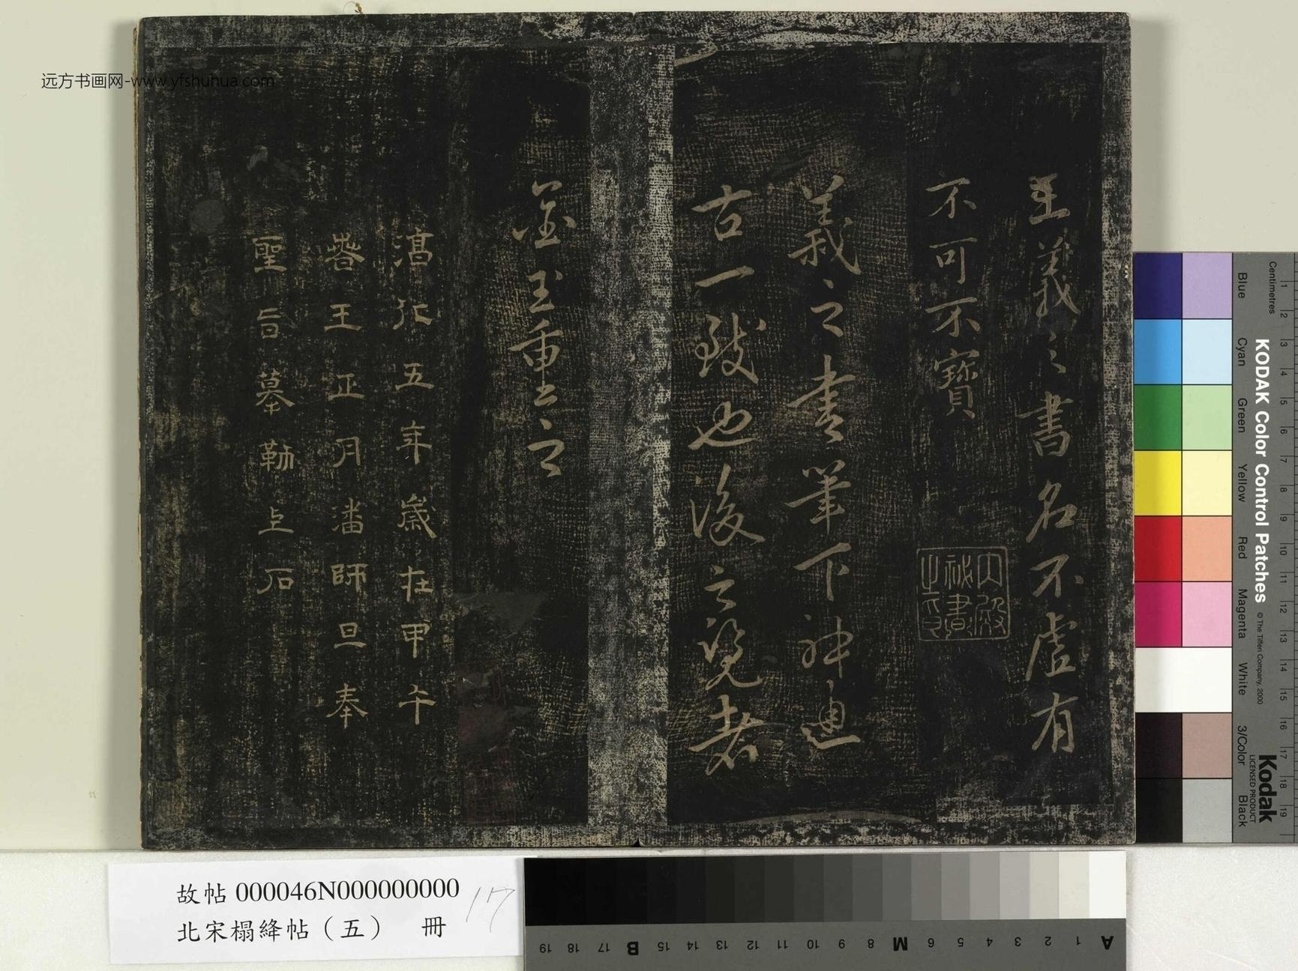 远方书画网-www.yfshuhua.com
王羲之書名不虛有
不可不寶
內殿
祕書
之印
羲之書筆下神通
古一致也後之覽者
金玉重之
淳化五年歲在甲午
春王正月潘師旦奉
聖旨摹勒上石
故帖 000046N000000000
17
北宋榻絳帖（五） 冊
KODAK Color Control Patches
© The Tiffen Company, 2000
Kodak
LICENSED PRODUCT
Centimetres
Blue
Cyan
Green
Yellow
Red
Magenta
White
3/Color
Black
1 2 3 4 5 6 7 8 9 10 11 12 13 14 15 16 17 18 19
A 1 2 3 4 5 6 M 8 9 10 11 12 13 14 15 B 17 18 19